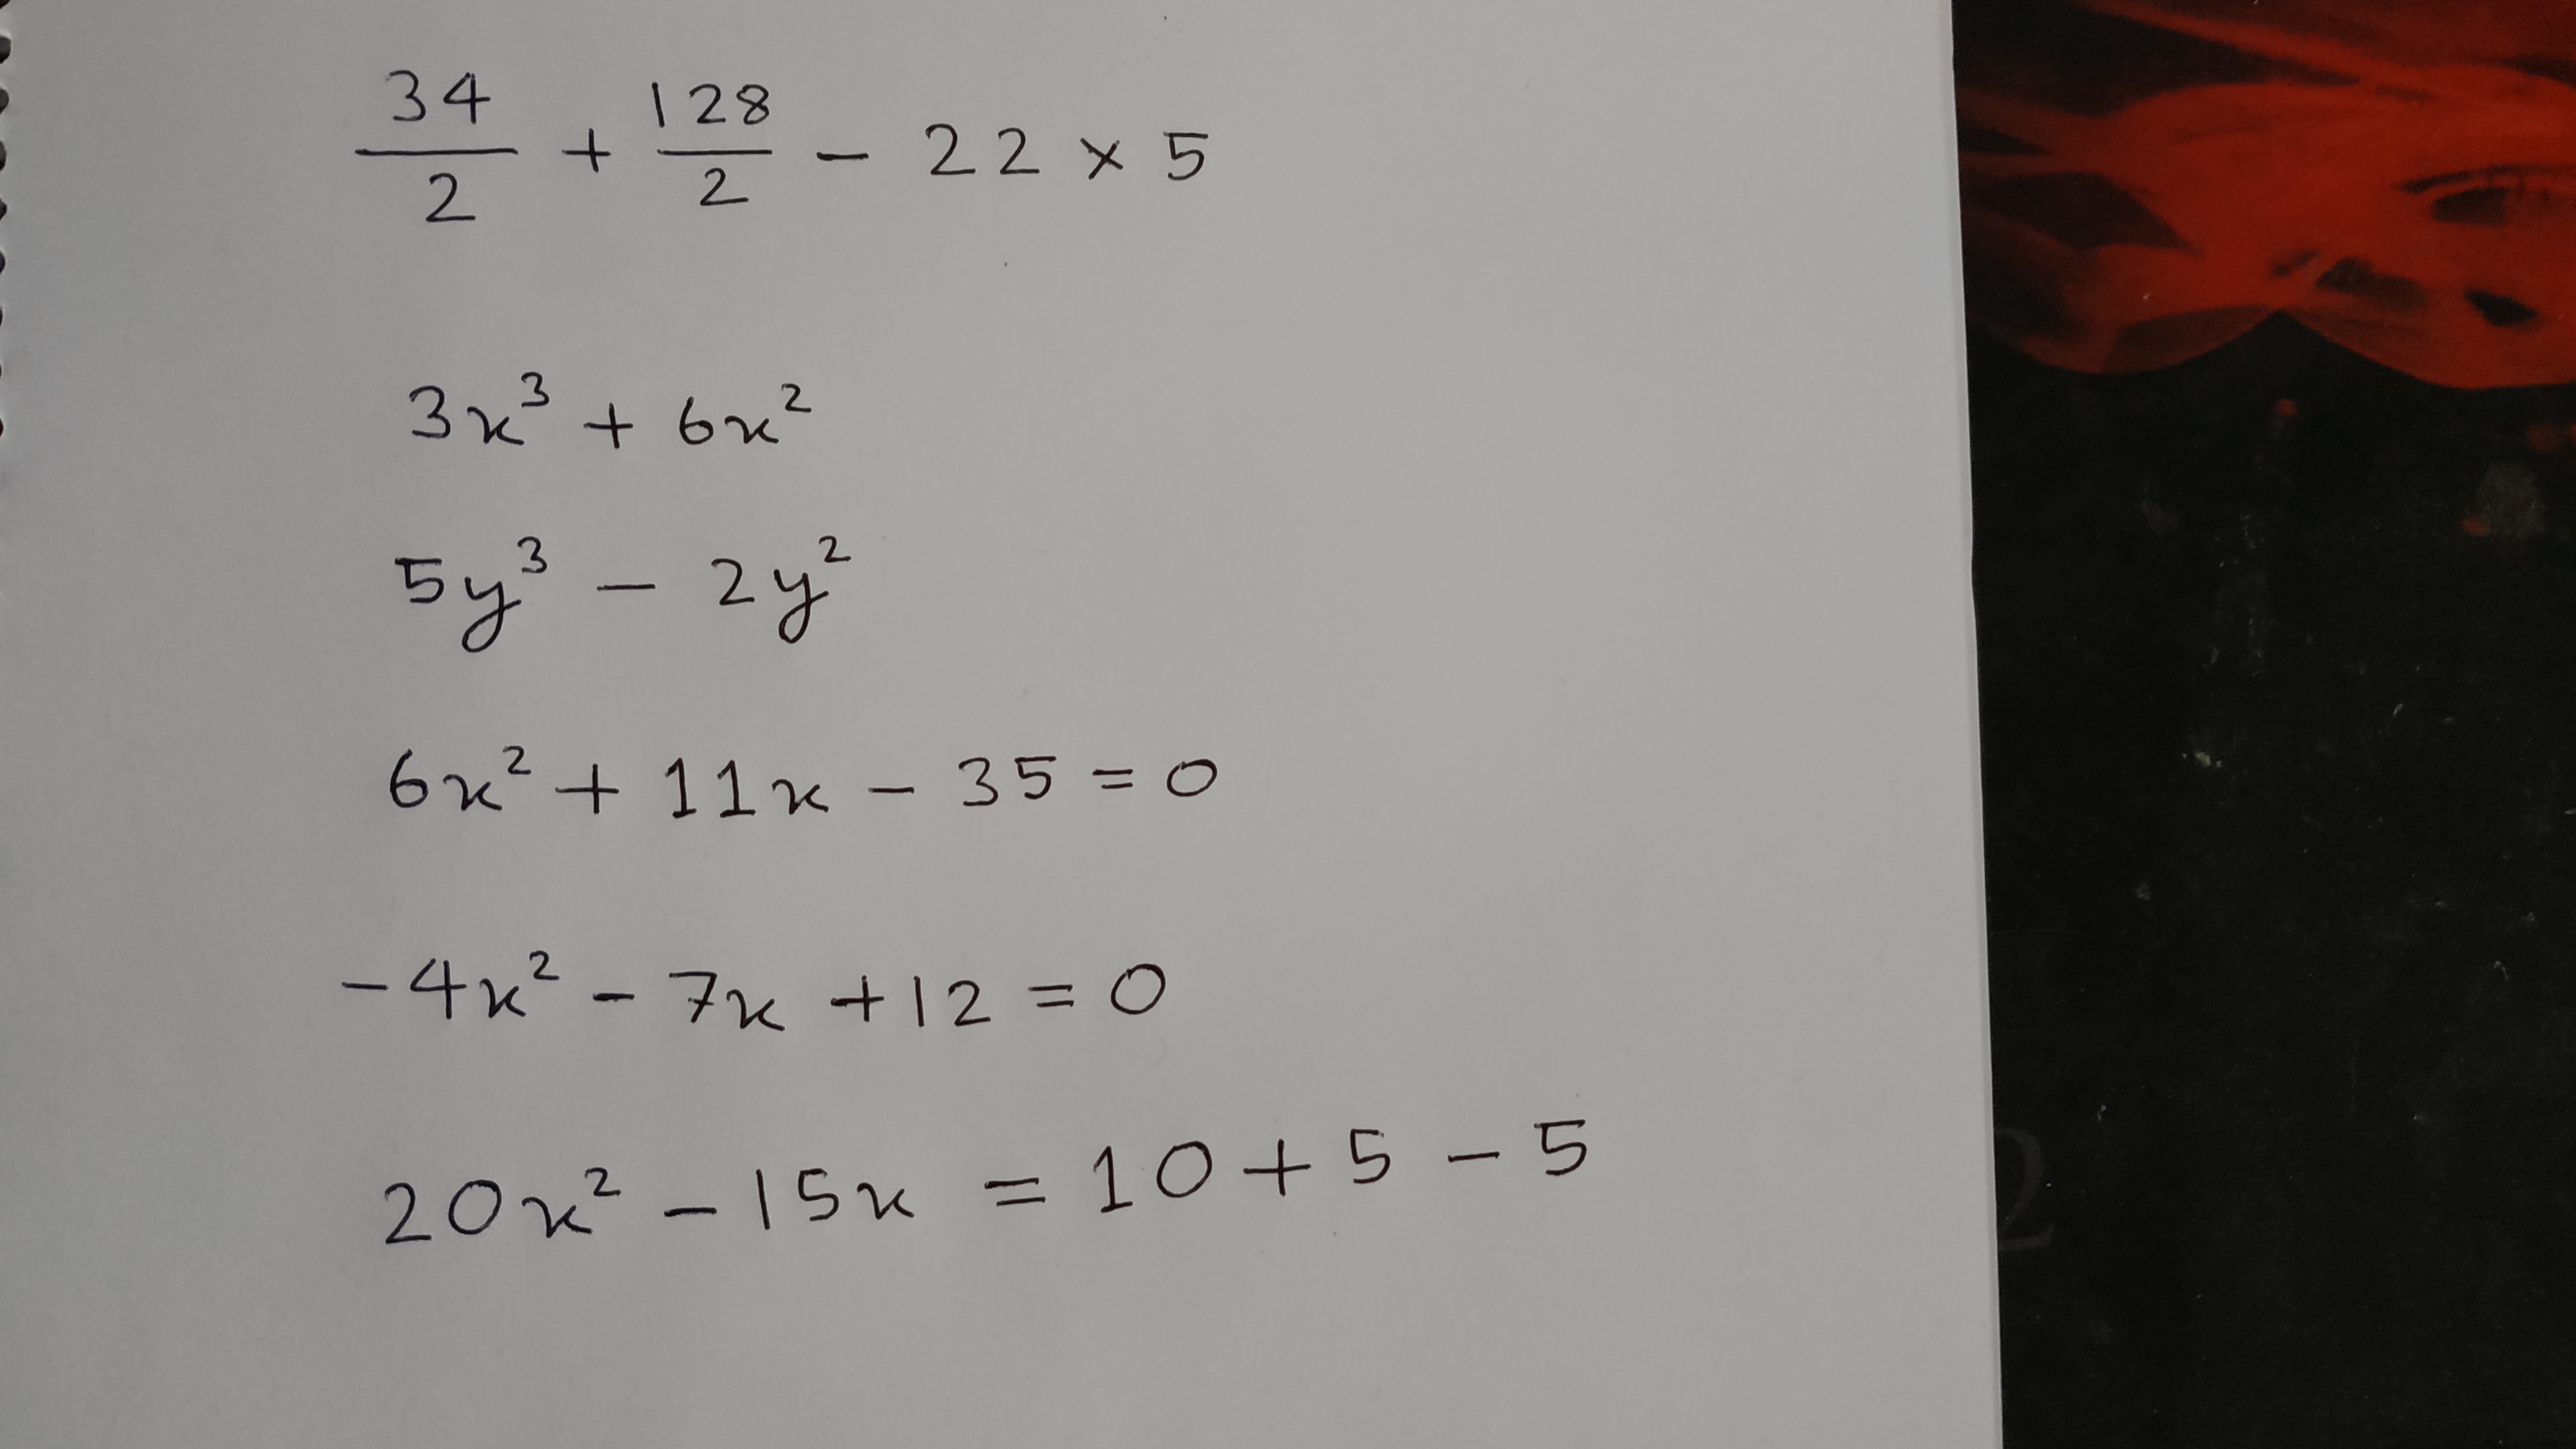 34/2 + 128/2 - 22 × 5
3x³ + 6x²
5y³ - 2y²
6x² + 11x - 35 = 0
-4x² - 7x + 12 = 0
20x² - 15x = 10 + 5 - 5
2